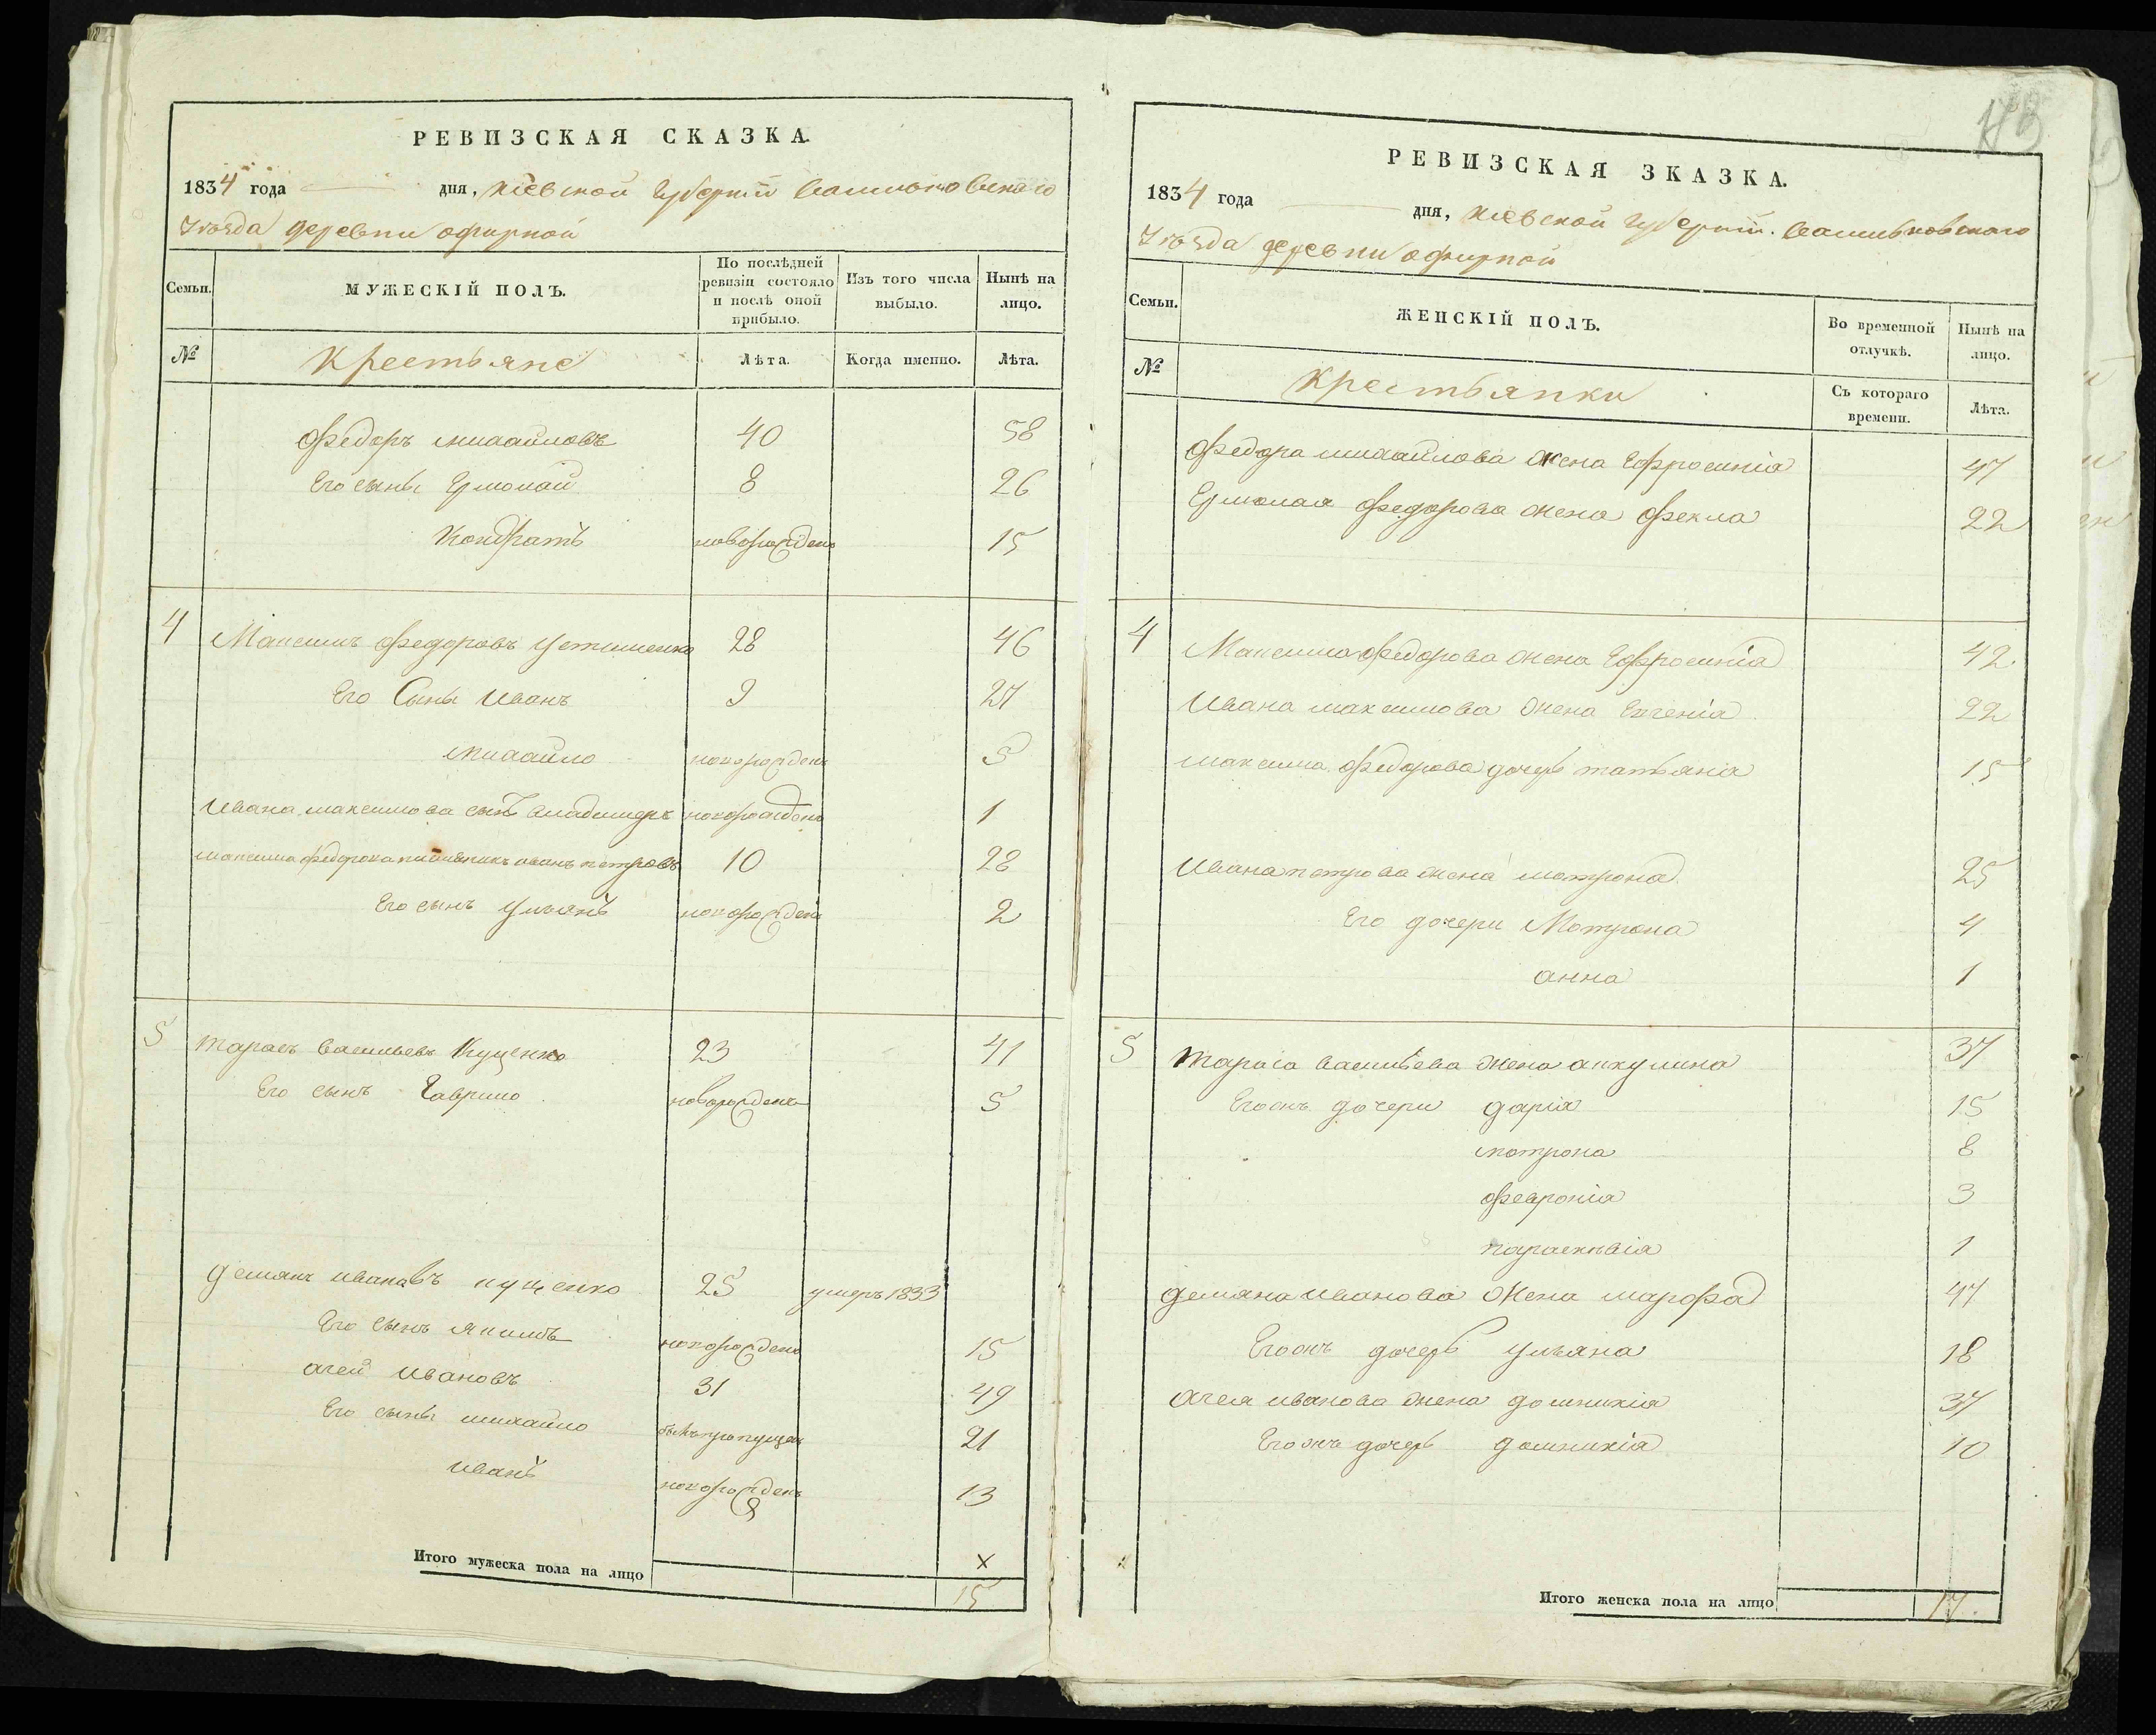 РЕВИЗСКАЯ СКАЗКА.
1834 года дня, Кіевской Губерніи Васильковскаго
Уѣзда деревни Офирной
Семьи.
МУЖЕСКІЙ ПОЛЪ.
По послѣдней ревизіи состояло и послѣ оной прибыло.
Изъ того числа выбыло.
Нынѣ на лицо.
№
Крестьяне
Лѣта.
Когда именно.
Лѣта.
Федоръ Михайловъ 40 58
Его сыны Ермолай 8 26
Кондратъ новорожденъ 15
4 Максимъ Федоровъ Устименко 28 46
Его Сыны Иванъ 9 27
Михайло новорожденъ 5
Ивана Максимова сынъ Владимеръ новорожденъ 1
Максима Федорова племѣникъ Иванъ Петровъ 10 28
Его сынъ Ульянъ новорожденъ 2
5 Тарасъ Васильевъ Куценко 23 41
Его сынъ Гаврило новорожденъ 5
Демянъ Ивановъ Куценко 25 умеръ 1833
Его сынъ Якимъ новорожденъ 15
Агей Ивановъ 31 49
Его сыны Михайло былъ пропущенъ 21
Иванъ новорожденъ 13
Итого мужеска пола на лицо 15
РЕВИЗСКАЯ ЗКАЗКА.
1834 года дня, Кіевской Губерніи. Васильковскаго
Уѣзда деревни Офирной
Семьи.
ЖЕНСКІЙ ПОЛЪ.
Во временной отлучкѣ.
Нынѣ на лицо.
№
Крестьянки
Съ котораго времени.
Лѣта.
Федора Михайлова жена Ефросинія 47
Ермолая Федорова жена Фекла 22
4 Максима Федорова жена Ефросинія 42
Ивана Максимова жена Евгенія 22
Максима Федорова дочерь Татьяна 15
Ивана Петрова жена Мотрона 25
Его дочери Мотрона 4
анна 1
5 Тараса Васильева жена акулина 37
Егожъ дочери Дарія 15
Мотрона 8
Февронія 3
Параскѣвія 1
Демяна Иванова жена Марфа 47
Егожъ дочерь Ульяна 18
Агея Иванова жена Домникія 37
Егожъ дочерь Домникія 10
Итого женска пола на лицо 17.